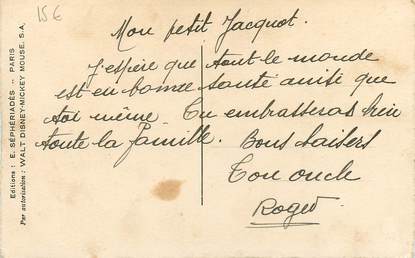 15 €
Mon petit Jacquot.
J'espère que tout le monde
est en bonne santé ainsi que
toi même. Tu embrasseras bien
toute la famille. Bons baisers
Ton oncle
Roger
Editions : E. SEPHÉRIADÈS — PARIS
Par autorisation : WALT DISNEY-MICKEY MOUSE, S.A.